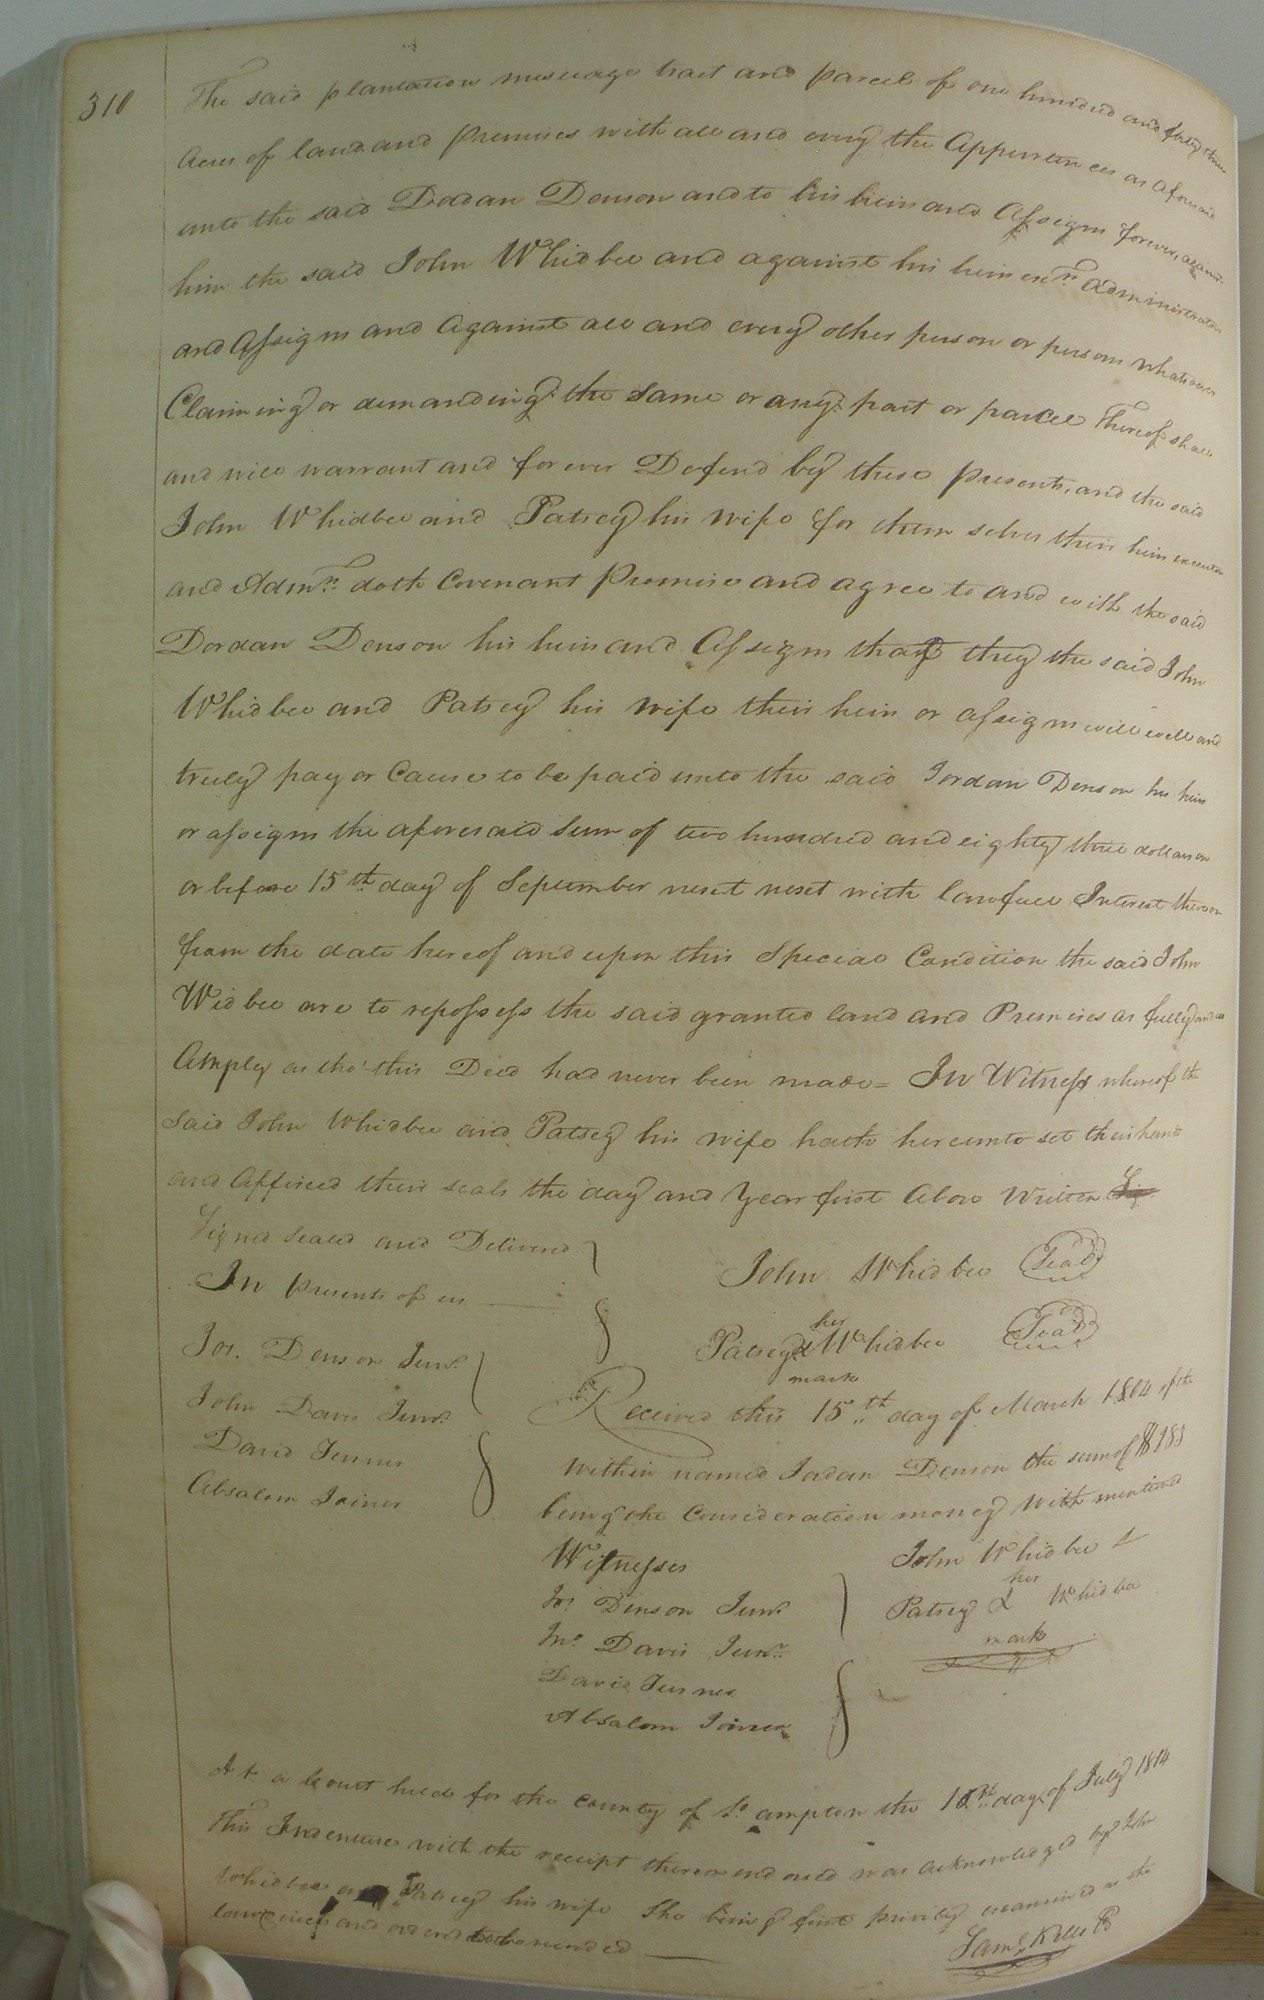 310
The said plantation messuage tract and parcel of one hundred and forty three
Acres of land and Premises with all and every the Appurtenences as aforesaid
unto the said Dordan Denson and to his heirs and Assigns forever, against
him the said John Whidbee and against his heirs exrs administrators
and Assigns and Against all and every other person or persons whatsoever
Claiming or demanding the Same or any part or parcel Thereof shall
and will warrant and forever Defend by these presents, and the said
John Whidbee and Patsey his wife for them selves their heirs executors
and Admrs doth Covenant Promise and agree to and with the said
Dordan Denson his heirs and Assigns that they the said John
Whidbee and Patsey his wife their heirs or assigns will well and
truly pay or Cause to be paid unto the said Jordan Denson his heirs
or assigns the aforesaid Sum of two hundred and eighty three dollars on
or before 15th day of September next next with lawfull Interest thereon
from the date hereof and upon this Special Condition the said John
Widbee are to repossess the said granted land and Premises as fully and as
Amply as tho' this Deed had never been made = In Witness whereof the
Said John Whidbee and Patsey his wife hath hereunto set their hands
and Affixed their seals the day and Year first Above Written
Signed Sealed and Deliverd
In presents of us
John Whidbee Seal
her
Patsey X Whidbee Seal
mark
Jos. Denson Junr.
John Davis Junr.
David Turner
Absalom Joiner
Received this 15th day of March 1814 of the
within named Jordan Denson the sum of $183
being the Consideration money with mentioned
Witnesses
Jos Denson Junr
Jno. Davis Junr.
David Turner
Absalom Joiner
John Whidbee
her
Patsey X Whidbee
mark
At a Court held for the County of So. ampton the 18th day of July 1814
This Indenture with the receipt thereon endorsed was acknowledged by John
Whidbee and Patsey his wife She being first privily examined as the
law directs and ordered to be recorded
Saml. Kello